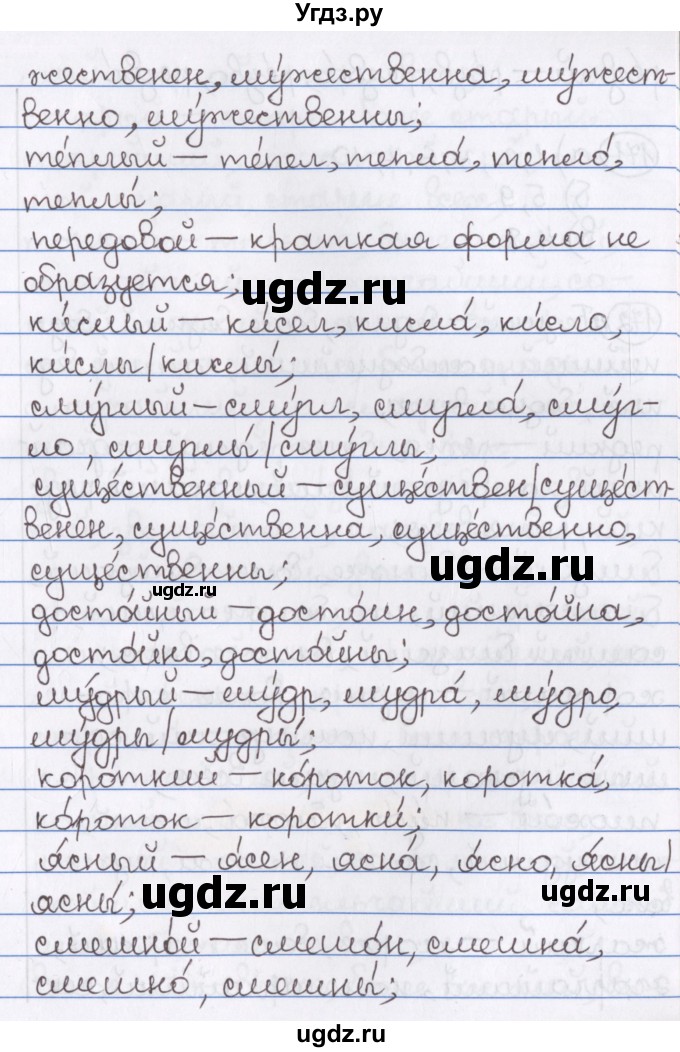 Угдз.ру
жественен, му́жественна, му́жест-
венно, му́жественны;
тёплый – тёпел, тепла́, тепло́,
теплы́;
передовой – краткая форма не
образуется;
ugdz.ru
ки́слый – ки́сел, кисла́, ки́сло,
ки́слы/кислы́;
сму́глый – сму́гл, смугла́, сму́г-
ло смуглы́/сму́глы,
суще́ственный – суще́ствен/суще́ст-
венен, суще́ственна суще́ственно,
ugdz.ru
суще́ственны;
ugdz.ru
досто́йный – досто́ин, досто́йна,
досто́йно, досто́йны;
му́дрый – му́др, мудра́, му́дро,
му́дры/мудры́;
коро́ткий – ко́роток, коротка́,
ко́роток – коротки́;
я́сный – я́сен, ясна́, я́сно, я́сны/
ясны́;
ugdz.ru
ugdz.ru
смешно́й – смешо́н, смешна́,
смешно́, смешны́;
ugdz.ru